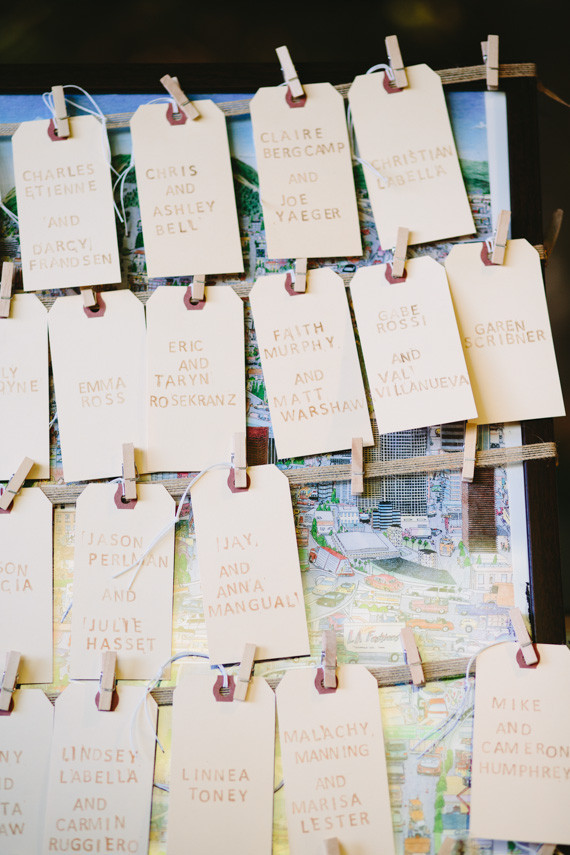 CHARLES
ETIENNE
AND
DARCY
FRANDSEN
CHRIS
AND
ASHLEY
BELL
CLAIRE
BERGCAMP
AND
JOE
YAEGER
CHRISTIAN
LABELLA
LY
YNE
EMMA
ROSS
ERIC
AND
TARYN
ROSEKRANZ
FAITH
MURPHY
AND
MATT
WARSHAW
GABE
ROSSI
AND
VAL
VILLANUEVA
GAREN
SCRIBNER
SON
CIA
JASON
PERLMAN
AND
JULIE
HASSET
JAY
AND
ANNA
MANGUAL
NY
ND
TA
AW
LINDSEY
LABELLA
AND
CARMIN
RUGGIERO
LINNEA
TONEY
MALACHY
MANNING
AND
MARISA
LESTER
MIKE
AND
CAMERON
HUMPHREY
L.A. Fashion